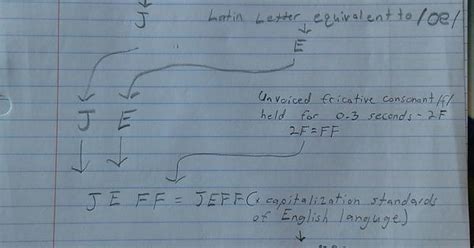 J Latin Letter equivalent to /oe/
E
J E
Unvoiced fricative consonant /f/
held for 0.3 seconds - 2F
2F=FF
J E FF = JEFF (x capitalization standards
of English languge)